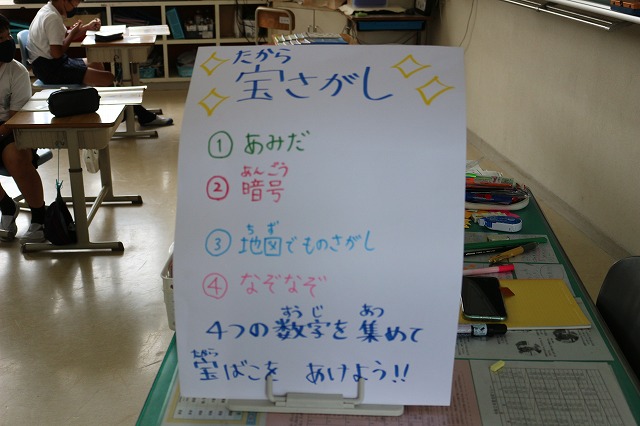 たから
宝さがし
①あみだ
あんごう
②暗号
ちず
③地図でものさがし
④なぞなぞ
すうじ あつ
4つの数字を集めて
たから
宝ばこを あけよう!!